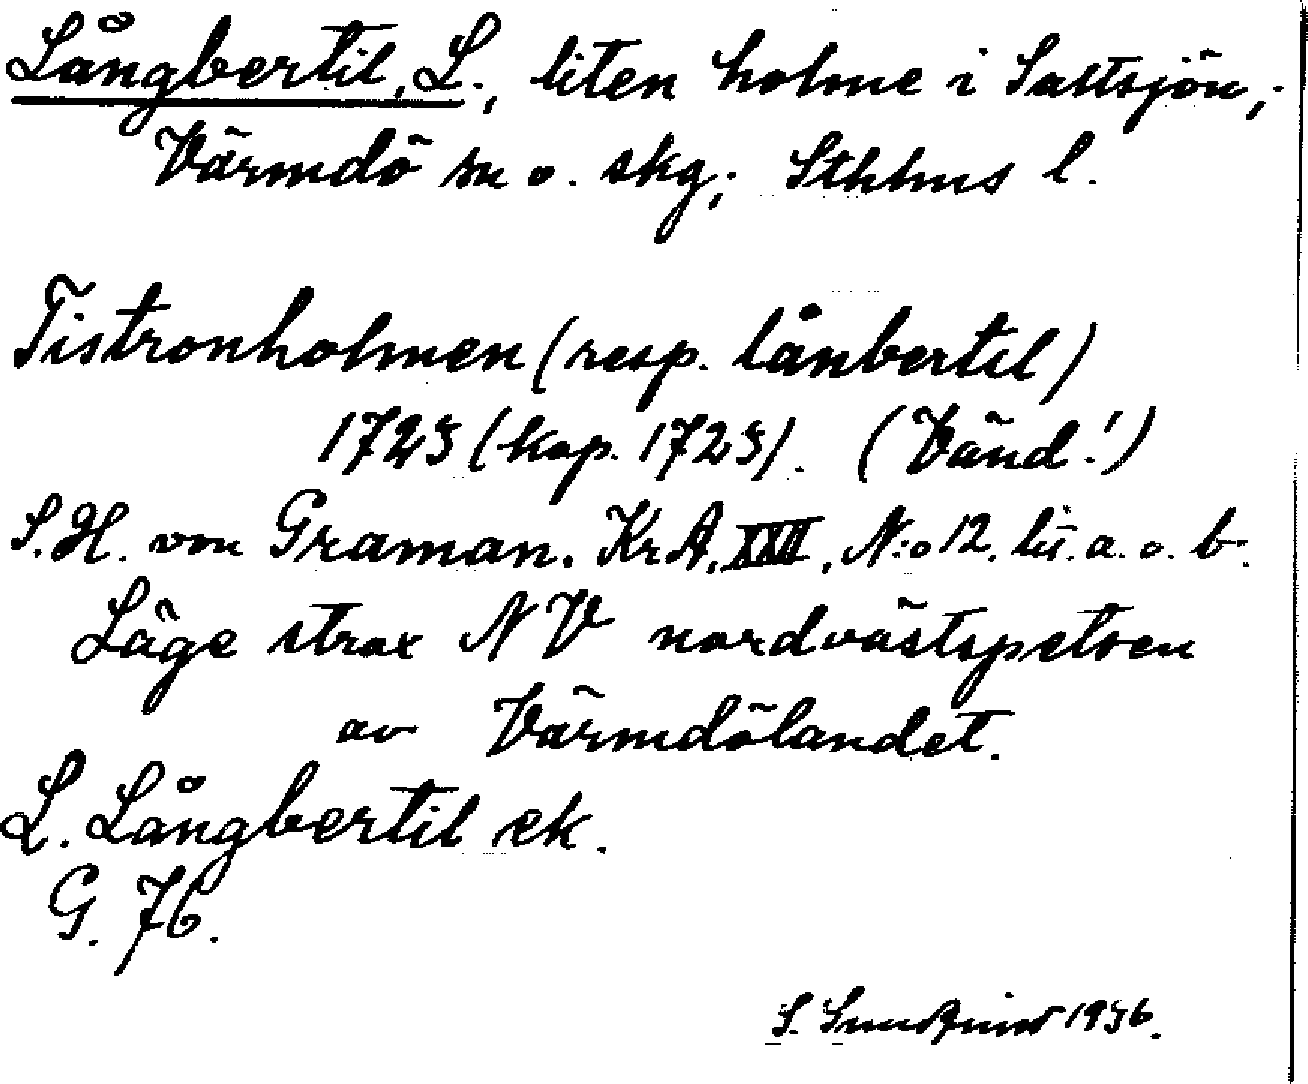 Långbertil, L., liten holme i Saltsjön,
Värmdö sn o. skg; Sthlms l.
Tistronholmen (resp. lånbertil)
1723 (kop. 1723). (Vänd!)
S.H. von Graman. KrA, XXII, N:o 12. lit. a. o. b.
Läge strax NV nordvästspetsen
av Värmdölandet.
L. Långbertil ek.
G. 76.
S. 1936.